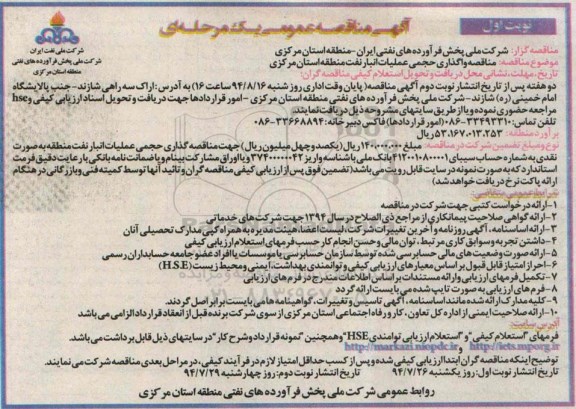 نوبت اول
آگهی مناقصه عمومی یک مرحله‌ای
شرکت ملی نفت ایران
شرکت ملی پخش فرآورده های نفتی
منطقه استان مرکزی
مناقصه گزار: شرکت ملی پخش فرآورده های نفتی ایران - منطقه استان مرکزی
موضوع مناقصه: مناقصه واگذاری حجمی عملیات انبار نفت منطقه استان مرکزی
تاریخ، مهلت، نشانی محل دریافت و تحویل استعلام کیفی مناقصه گران:
دو هفته پس از تاریخ انتشار نوبت دوم آگهی مناقصه( پایان وقت اداری روز شنبه ۹۴/۸/۱۶ ساعت ۱۶) به آدرس: اراک سه راهی شازند- جنب پالایشگاه
امام خمینی (ره) شازند- شرکت ملی پخش فرآورده های نفتی منطقه استان مرکزی - امور قراردادها جهت دریافت و تحویل اسناد ارزیابی کیفی و hse
مراجعه حضوری نموده و یا از طریق سایتهای مشروحه ذیل دریافت نمایند.
تلفن تماس: ۳۳۴۹۳۳۱۰-۰۸۶ (امور قراردادها) فاکس دبیرخانه: ۳۳۶۶۸۸۹۴-۰۸۶
برآورد منطقه: ۵۳.۱۶۷.۰۱۳.۲۵۳ ریال
نوع و مبلغ تضمین شرکت در مناقصه: مبلغ ۱۴۰.۰۰۰.۰۰۰ ریال (یکصد و چهل میلیون ریال) جهت مناقصه گذاری حجمی عملیات انبار نفت منطقه به صورت
نقدی به شماره حساب سیبای ۴۱۲۰۰۱۰۸۰۰۰۰۱ بانک ملی با شناسه واریز ۳۷۴۰۰۰۰۰۴۲ و یا اوراق مشارکت بینام و یا ضمانت نامه بانکی با رعایت دقیق فرمت
استاندارد که به صورت نمونه در سایت قابل رویت می باشد(تضمین فوق پس از ارزیابی کیفی مناقصه گران و تائید آنها توسط کمیته فنی و بازرگانی در هنگام
ارائه پاکت نرخ دریافت خواهد شد)
شرایط عمومی متقاضی:
۱-ارائه درخواست کتبی جهت شرکت در مناقصه
۲-ارائه گواهی صلاحیت پیمانکاری از مراجع ذی الصلاح در سال ۱۳۹۴ جهت شرکت های خدماتی
۳-ارائه اساسنامه، آگهی روزنامه و آخرین تغییرات شرکت، لیست اعضا، هیئت مدیره به همراه کپی مدارک تحصیلی آنان
۴-داشتن تجربه و سوابق کاری مرتبط ، توان مالی و حسن انجام کار حسب فرمهای استعلام ارزیابی کیفی
۵-ارائه صورت وضعیت های مالی حسابرسی شده توسط سازمان حسابرسی یا موسسات یا افراد عضو جامعه حسابداران رسمی
۶-احراز امتیاز قابل قبول بر اساس معیارهای ارزیابی کیفی و توانمندی بهداشت، ایمنی و محیط زیست (H.S.E)
۷-تکمیل فرمهای ارزیابی و ارائه مستندات بر اساس اطلاعات مندرج در فرم های ارزیابی
۸-فرم های ارزیابی به صورت تایپ شده می بایست ارائه گردد
۹-کلیه مدارک ارائه شده مانند اساسنامه، آگهی تاسیس و تغییرات، گواهینامه ها می بایست برابر اصل گردند.
۱۰-ارائه صلاحیت ایمنی از اداره کل تعاون، کار و رفاه اجتماعی استان مرکزی از سوی شرکت برنده قبل از انعقاد قرارداد الزامی می باشد
آدرس سایت:
فرمهای "استعلام کیفی" و "استعلام ارزیابی توانمندی HSE" و همچنین "نمونه قرارداد و شرح کار" در سایتهای ذیل قابل برداشت می باشد.
http://markazi.niopdc.ir , http://iets.mporg.ir
توضیح اینکه مناقصه گران ابتدا ارزیابی کیفی شده و پس از کسب حداقل امتیاز لازم در فرآیند کیفی، در مراحل بعدی مناقصه شرکت می نمایند.
تاریخ انتشار نوبت اول: روز یکشنبه ۹۴/۷/۲۶ تاریخ انتشار نوبت دوم: روز چهارشنبه ۹۴/۷/۲۹
روابط عمومی شرکت ملی پخش فرآورده های نفتی منطقه استان مرکزی